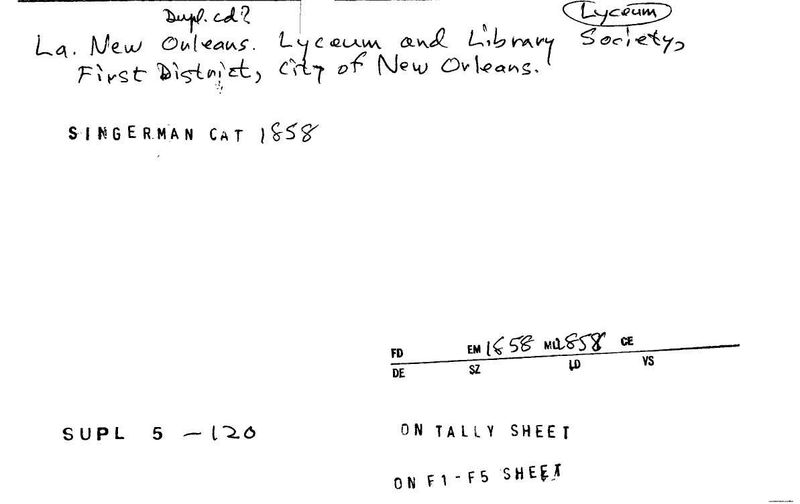 Dupl. cd? Lyceum
La. New Orleans. Lyceum and Library Society,
First District, City of New Orleans.
SINGERMAN CAT 1858
FD EM 1858 ML 1858 CE
DE SZ LD VS
SUPL 5 - 120 ON TALLY SHEET
ON F1-F5 SHEET